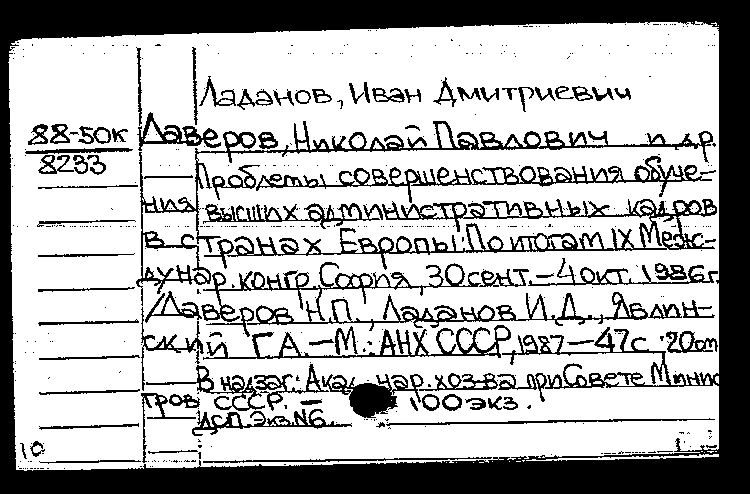 Ладанов, Иван Дмитриевич
88-50к
8233
Лаверов, Николай Павлович и др.
Проблемы совершенствования обуче-
ния высших административных кадров
в странах Европы: По итогам IX Меж-
дунар. конгр. София, 30 сент. – 4 окт. 1986 г.
/Лаверов Н.П., Ладанов И.Д., Явлин-
ский Г.А. – М.: АНХ СССР, 1987 – 47с 20см
В надзаг.: Акад. нар. хоз-ва при Совете Минис
тров СССР. – 100 экз.
ДСП. Экз. N6.
10